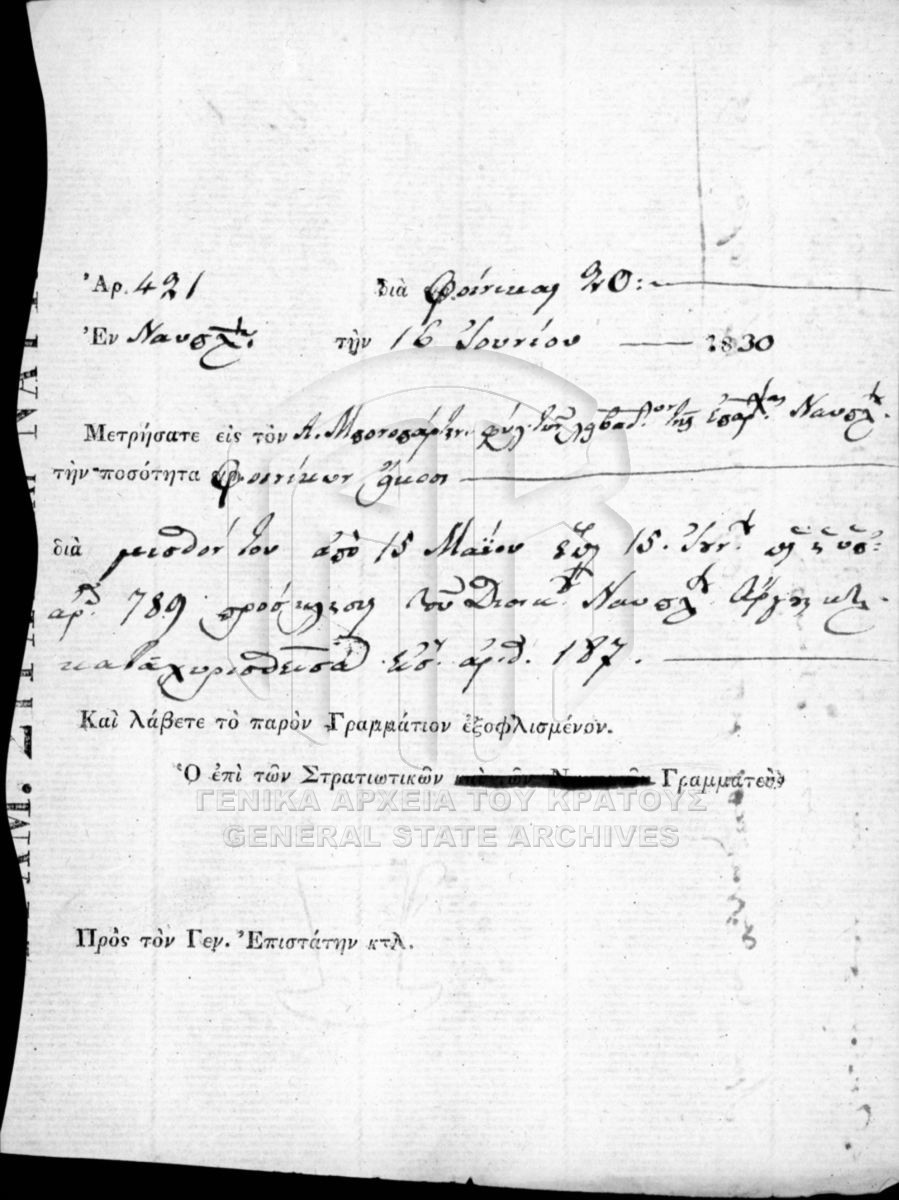 Ἀρ. 421 διὰ φοίνικας 20:
Ἐν Ναυπλ. τὴν 16 Ἰουνίου 1830
Μετρήσατε εἰς τὸν Α. φύλ. τῶν τῆς ἐπαρχ. Ναυπλ.
τὴν ποσότητα φοινίκων εἴκοσι
διὰ μισθόν του ἀπὸ 15 Μαΐου ἕως 15. Ἰουν.
ἀρ. 789 πρόσκλησις τοῦ Διοικ. Ναυπλ. Ἄργους κτλ.
καταχωρισθεῖσα ἀριθ. 187.
Καὶ λάβετε τὸ παρὸν Γραμμάτιον ἐξοφλισμένον.
Ὁ ἐπὶ τῶν Στρατιωτικῶν Γραμματεὺς
ΓΕΝΙΚΑ ΑΡΧΕΙΑ ΤΟΥ ΚΡΑΤΟΥΣ
GENERAL STATE ARCHIVES
Πρὸς τὸν Γεν. Ἐπιστάτην κτλ.